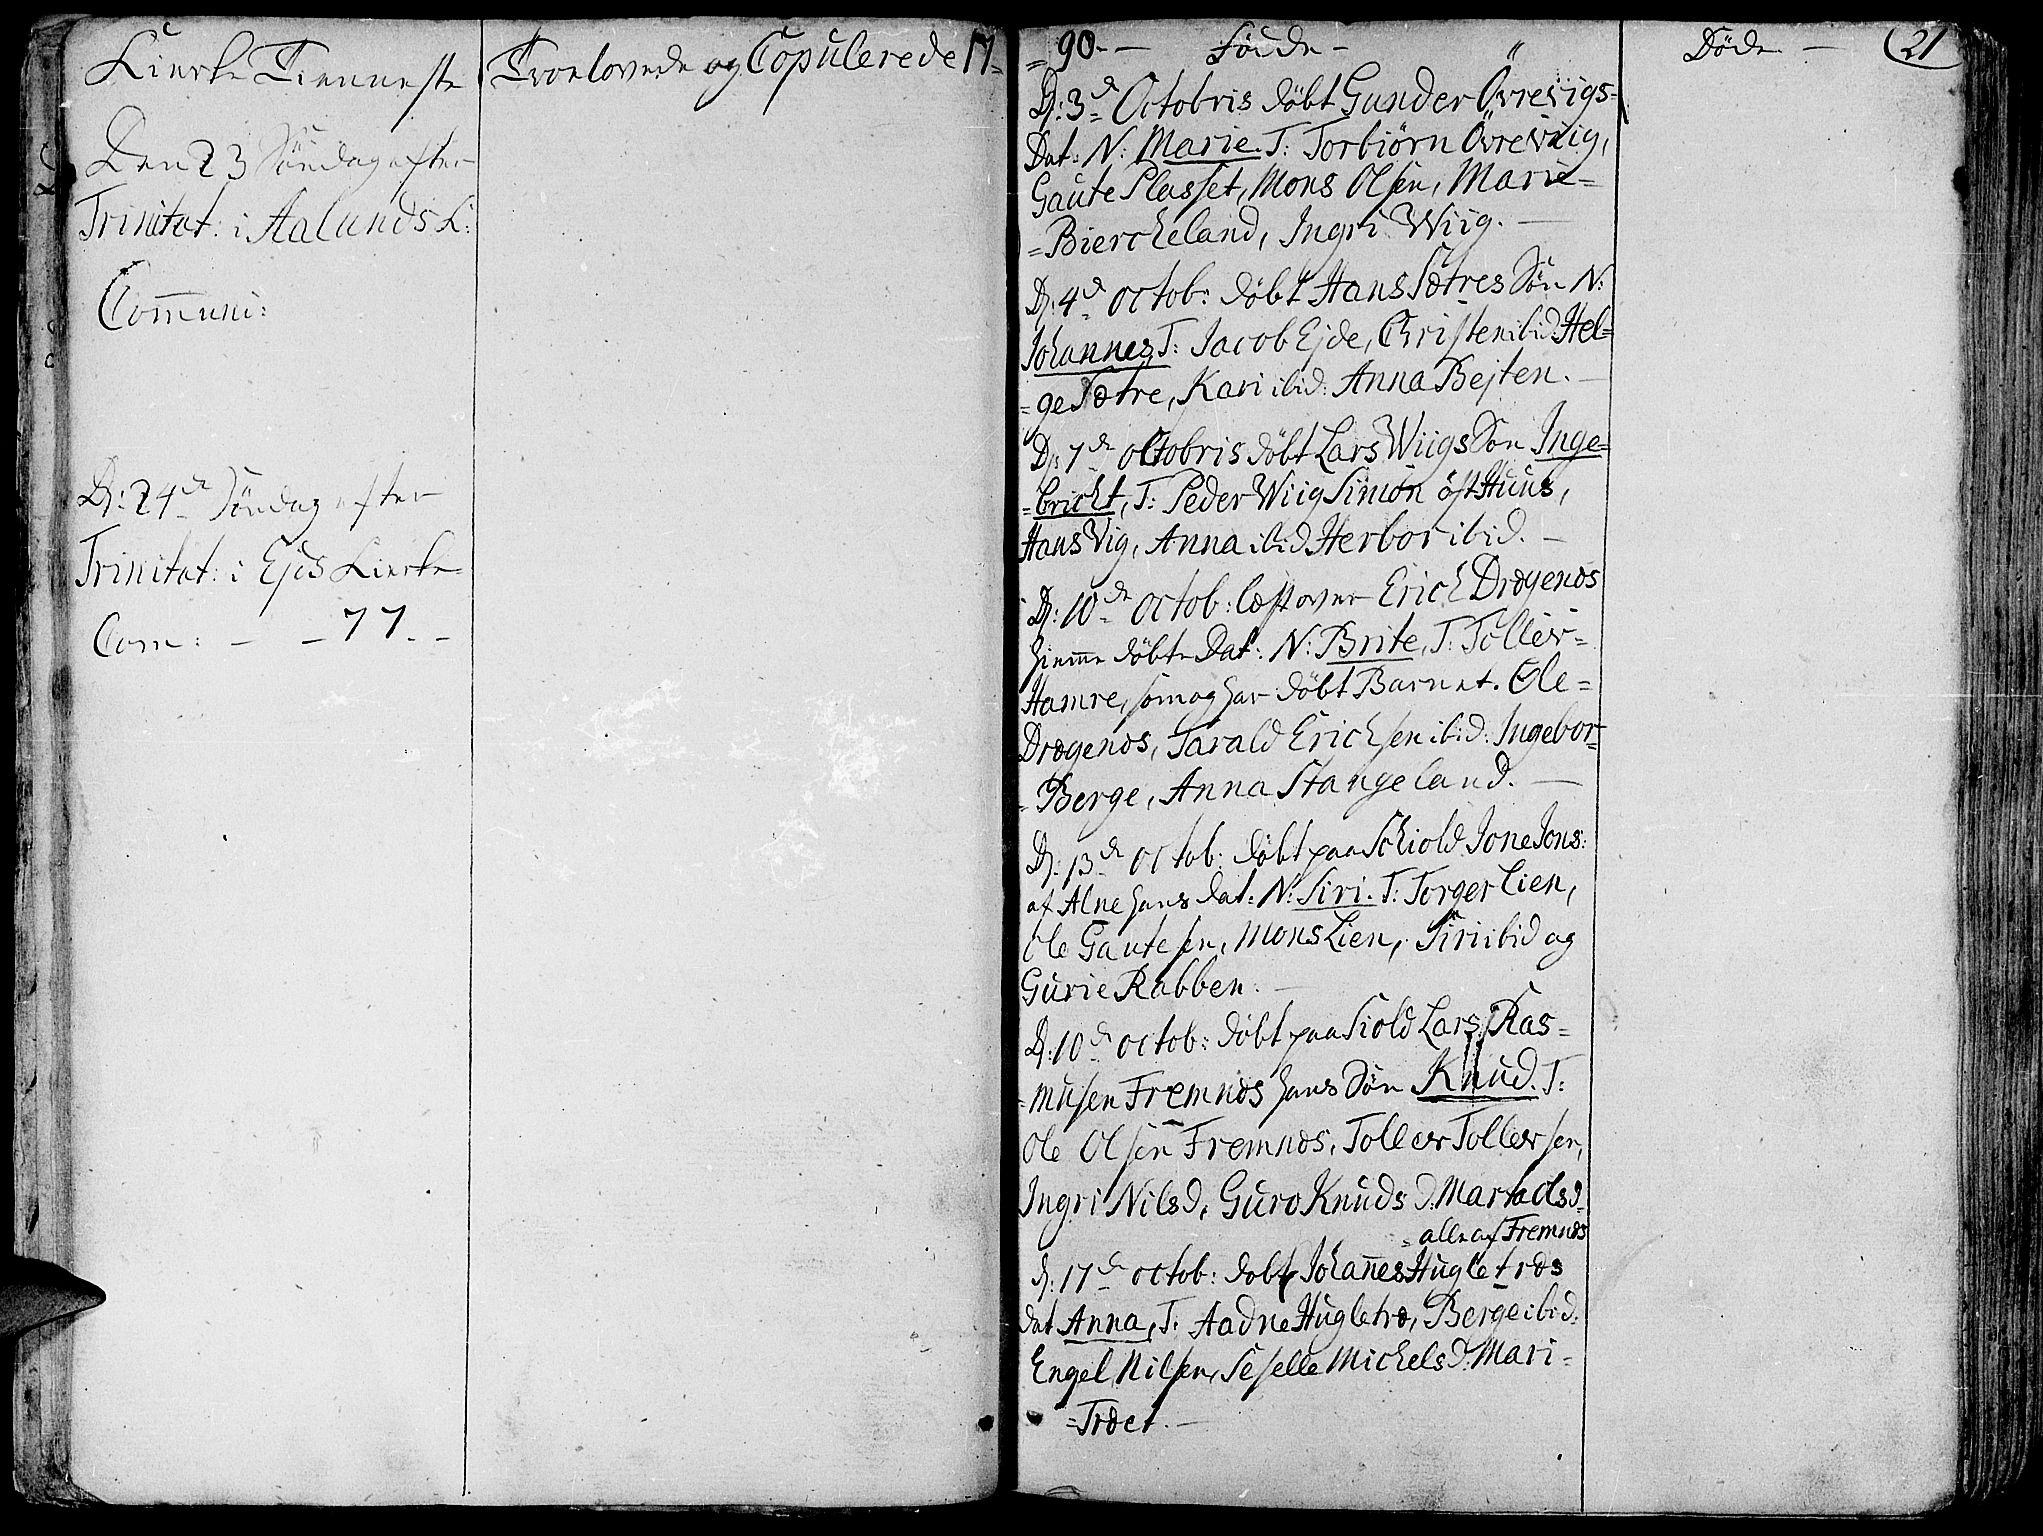 Kierke Tienneste
Den 23 Söndag efter
Trinitat: i Aalunds K:
Com̄uni:
D: 24de Söndag efter
Trinitat: i Ejds Kierke
Com: - - 77. -
Troelovede og Copulerede 17=
=90. - Födde -
D: 3de Octobris döbt Gunder Övrevigs=
Dat: N: Marie. T: Torbiörn Övreviig,
Gaute Plasset, Mons Olsen, Marie=
=Biercheland, Ingri Wiig. -
D: 4de Octob: döbt Hans Sætres Sön N:
Johannes T: Jacob Ejde, Christen ibid. Hel=
=ge Sætre, Kari ibid: Anna Bejten. -
D: 7de Octobris döbt Lars Wiigs Sön Inge=
=bricht, T: Peder Wiig Simon östHuus,
Hans Vig, Anna ibid Herbor ibid. -
D: 10de Octob: læst over Erich Drægenæs
hiem̄e döbte Dat: N: Brite, T: Tollev=
Hamre, som og har döbt Barnet. Ole=
Drægenæs, Tarald Erichsen ibid: Ingebor=
=Berge, Anna Stangeland. -
D: 13de Octob: döbt paa Schiold Jone Jons:
af Alne hans dat: N: Siri. T: Torger Lien,
Ole Gautesen, Mons Lien, Siri ibid og
Gurie Rabben. -
D: 10de Octob: döbt paa Siold Lars Ras=
=musen Fremnæs hans Sön Knud. T:
Ole Olsen Fremnæs, Tollev Tollevsen,
Ingri Nilsd, Guro Knudsd. Marta Olsd.
=alle af Fremnæs
D: 17de Octob: döbt Johan̄es Hugletræs
dat Anna, T: Aadne Hugletræ, Berge ibid.
Engel Nilsen, Seselle Michelsd. Mari=
=Træet. -
Döde - 21